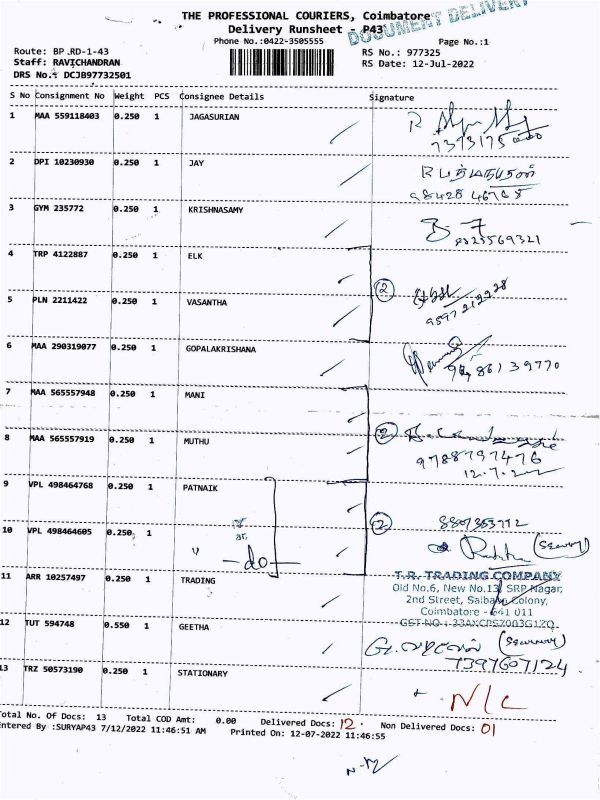 THE PROFESSIONAL COURIERS, Coimbatore
Delivery Runsheet - P43
DOCUMENT DELIVERY
Phone No.:0422-3505555
Page No.:1
Route: BP.RD-1-43
RS No.: 977325
Staff: RAVICHANDRAN
RS Date: 12-Jul-2022
DRS No.: DCJB97732501
S No Consignment No Weight PCS Consignee Details Signature
1 MAA 559118403 0.250 1 JAGASURIAN
2 DPI 10230930 0.250 1 JAY
3 GYM 235772 0.250 1 KRISHNASAMY
4 TRP 4122887 0.250 1 ELK
②
5 PLN 2211422 0.250 1 VASANTHA
9597212228
6 MAA 290319077 0.250 1 GOPALAKRISHANA
7 MAA 565557948 0.250 1 MANI
②
8 MAA 565557919 0.250 1 MUTHU
9788797476
9 VPL 498464768 0.250 1 PATNAIK
②
10 VPL 498464605 0.250 1 " —do—
11 ARR 10257497 0.250 1 TRADING
T.R. TRADING COMPANY
Old No.6, New No.13, SRP Nagar,
2nd Street, Saibaba Colony,
Coimbatore - 641 011
12 TUT 594748 0.550 1 GEETHA
7397607124
13 TRZ 50573190 0.250 1 STATIONARY
N/C
Total No. Of Docs: 13 Total COD Amt: 0.00 Delivered Docs: 12. Non Delivered Docs: 01
Entered By :SURYAP43 7/12/2022 11:46:51 AM Printed On: 12-07-2022 11:46:55